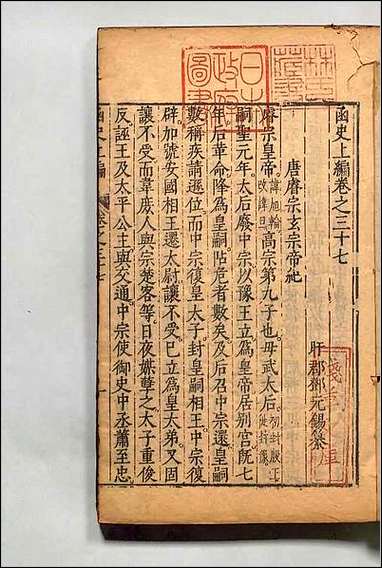 函史上編卷之三十七
盱郡鄧元錫纂
唐睿宗玄宗帝紀
睿宗皇帝諱旭輪改諱旦高宗第九子也毋武太后初封殷王徙封豫
嗣聖元年太后廢中宗以豫王立爲皇帝居別宫旣七
年后革命降爲皇嗣阽危者數矣及后召中宗還皇嗣
數稱疾請遜位而中宗復皇太子封皇嗣相王中宗復
辟加號安國相王遷太尉讓不受已立爲皇太弟又固
讓不受而韋庶人與宗楚客等日夜媒孽之太子重俊
反誣王及太平公主與交通中宗使御史中丞蕭至忠
函史上編
卷之三十七
日本
政府
圖書